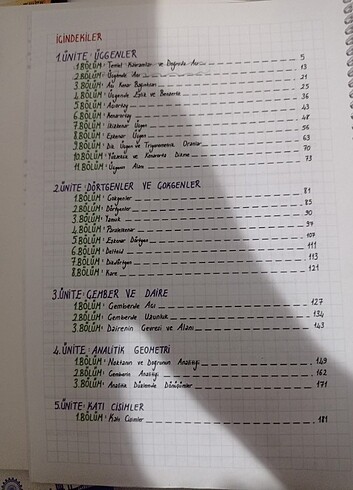 İÇİNDEKİLER
1.ÜNİTE: ÜÇGENLER
1.BÖLÜM: Temel Kavramlar ve Doğruda Açı 5
2.BÖLÜM: Üçgende Açı 13
3.BÖLÜM: Açı Kenar Bağıntıları 21
4.BÖLÜM: Üçgende Eşlik ve Benzerlik 25
5.BÖLÜM: Açıortay 36
6.BÖLÜM: Kenarortay 43
7.BÖLÜM: İkizkenar Üçgen 48
8.BÖLÜM: Eşkenar Üçgen 56
9.BÖLÜM: Dik Üçgen ve Trigonometrik Oranlar 63
10.BÖLÜM: Yükseklik ve Kenarorta Dikme 70
11.BÖLÜM: Üçgenin Alanı 73
2.ÜNİTE: DÖRTGENLER VE ÇOKGENLER
1.BÖLÜM: Çokgenler 81
2.BÖLÜM: Dörtgenler 85
3.BÖLÜM: Yamuk 90
4.BÖLÜM: Paralelkenar 97
5.BÖLÜM: Eşkenar Dörtgen 107
6.BÖLÜM: Deltoid 111
7.BÖLÜM: Dikdörtgen 113
8.BÖLÜM: Kare 121
3.ÜNİTE: ÇEMBER VE DAİRE
1.BÖLÜM: Çemberde Açı 127
2.BÖLÜM: Çemberde Uzunluk 134
3.BÖLÜM: Dairenin Çevresi ve Alanı 143
4.ÜNİTE: ANALİTİK GEOMETRİ
1.BÖLÜM: Noktanın ve Doğrunun Analitiği 149
2.BÖLÜM: Çemberin Analitiği 162
3.BÖLÜM: Analitik Düzlemde Dönüşümler 171
5.ÜNİTE: KATI CİSİMLER
1.BÖLÜM: Katı Cisimler 181